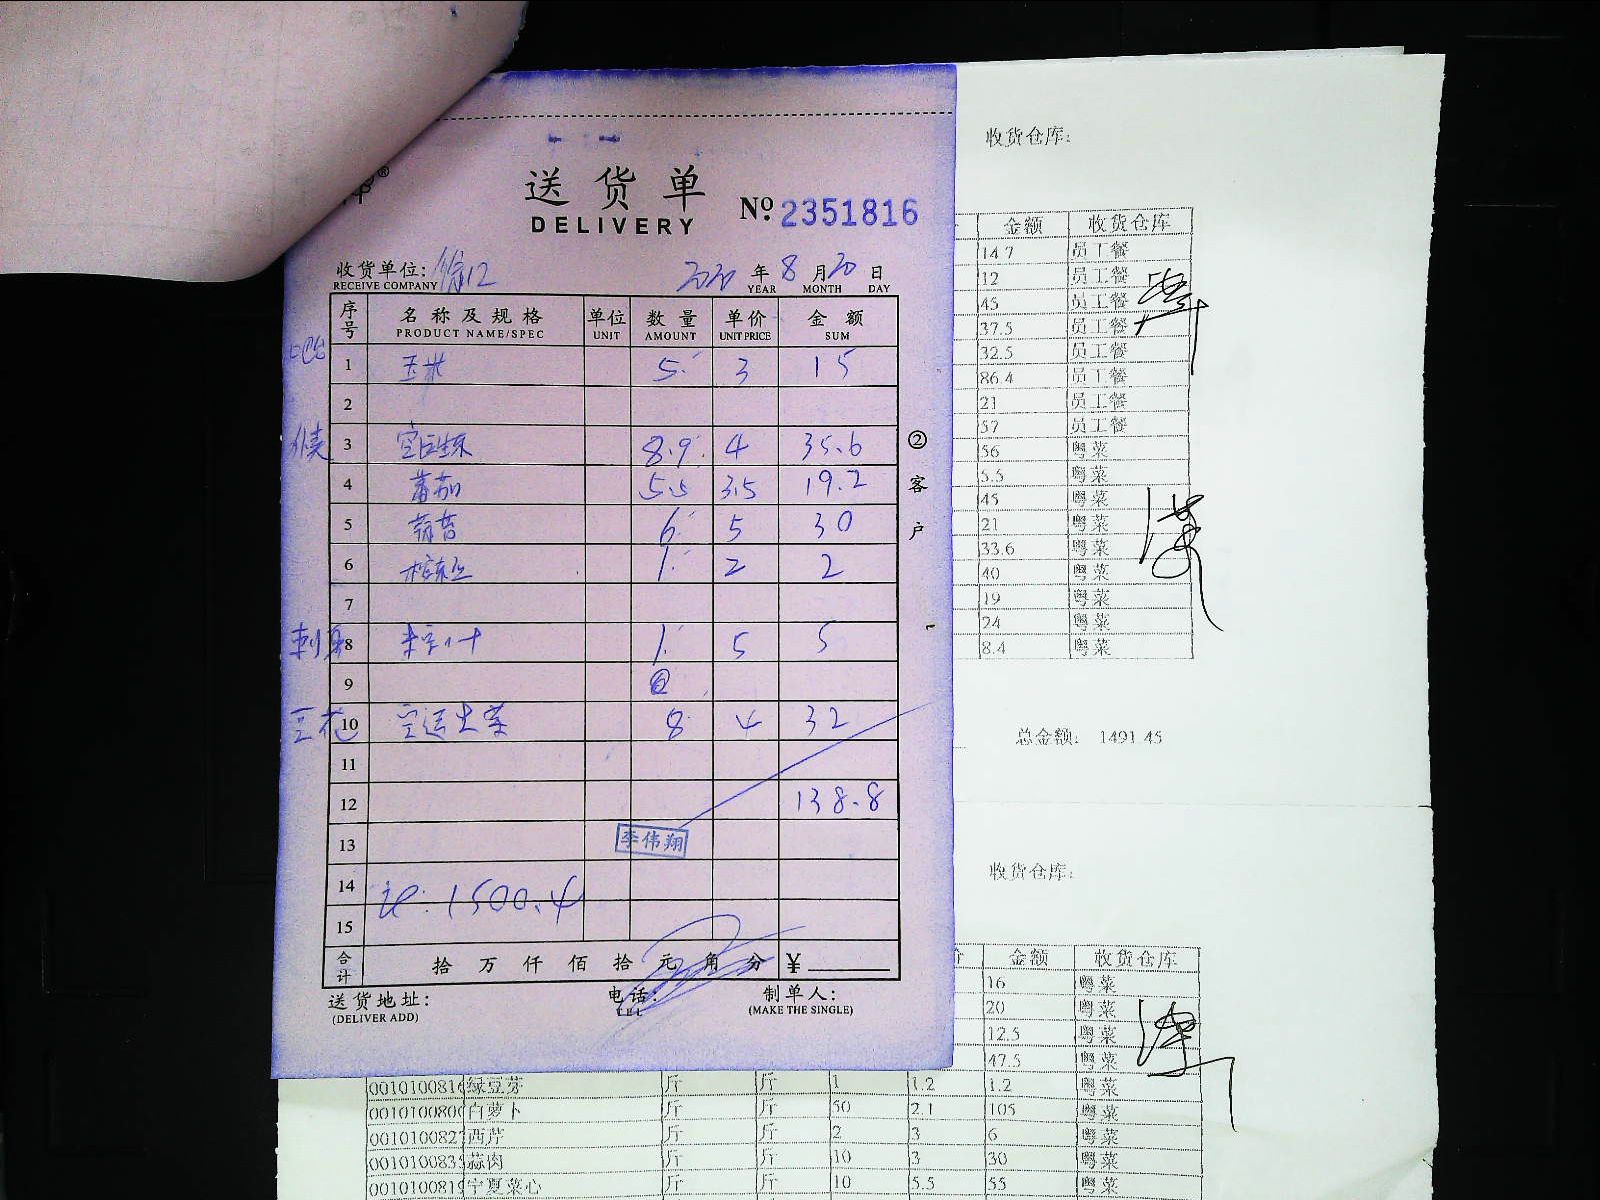 送货单
DELIVERY
No. 2351816
收货单位:
RECEIVE COMPANY
2020 年 8 月 20 日
YEAR MONTH DAY
序号 名称及规格 单位 数量 单价 金额
PRODUCT NAME/SPEC UNIT AMOUNT UNIT PRICE SUM
1 玉米 5 3 15
2
3 8.9 4 35.6
4 蕃茄 5.5 3.5 19.2
5 6 5 30
6 1 2 2
7
刺身 8 1 5 5
9
10 空运生菜 8 4 32
11
12 138.8
13 李伟翔
14 1500.4
15
合计 拾 万 仟 佰 拾 元 角 分 ¥
送货地址:
(DELIVER ADD)
电话:
TEL
制单人:
(MAKE THE SINGLE)
②客户
收货仓库:
金额 收货仓库
14.7 员工餐
12 员工餐
45 员工餐
37.5 员工餐
32.5 员工餐
86.4 员工餐
21 员工餐
57 员工餐
56 粤菜
5.5 粤菜
45 粤菜
21 粤菜
33.6 粤菜
40 粤菜
19 粤菜
24 粤菜
8.4 粤菜
总金额: 1491.45
收货仓库:
价 金额 收货仓库
16 粤菜
20 粤菜
12.5 粤菜
47.5 粤菜
绿豆芽 斤 斤 1 1.2 1.2 粤菜
白萝卜 斤 斤 50 2.1 105 粤菜
西芹 斤 斤 2 3 6 粤菜
蒜肉 斤 斤 10 3 30 粤菜
宁夏菜心 斤 斤 10 5.5 55 粤菜